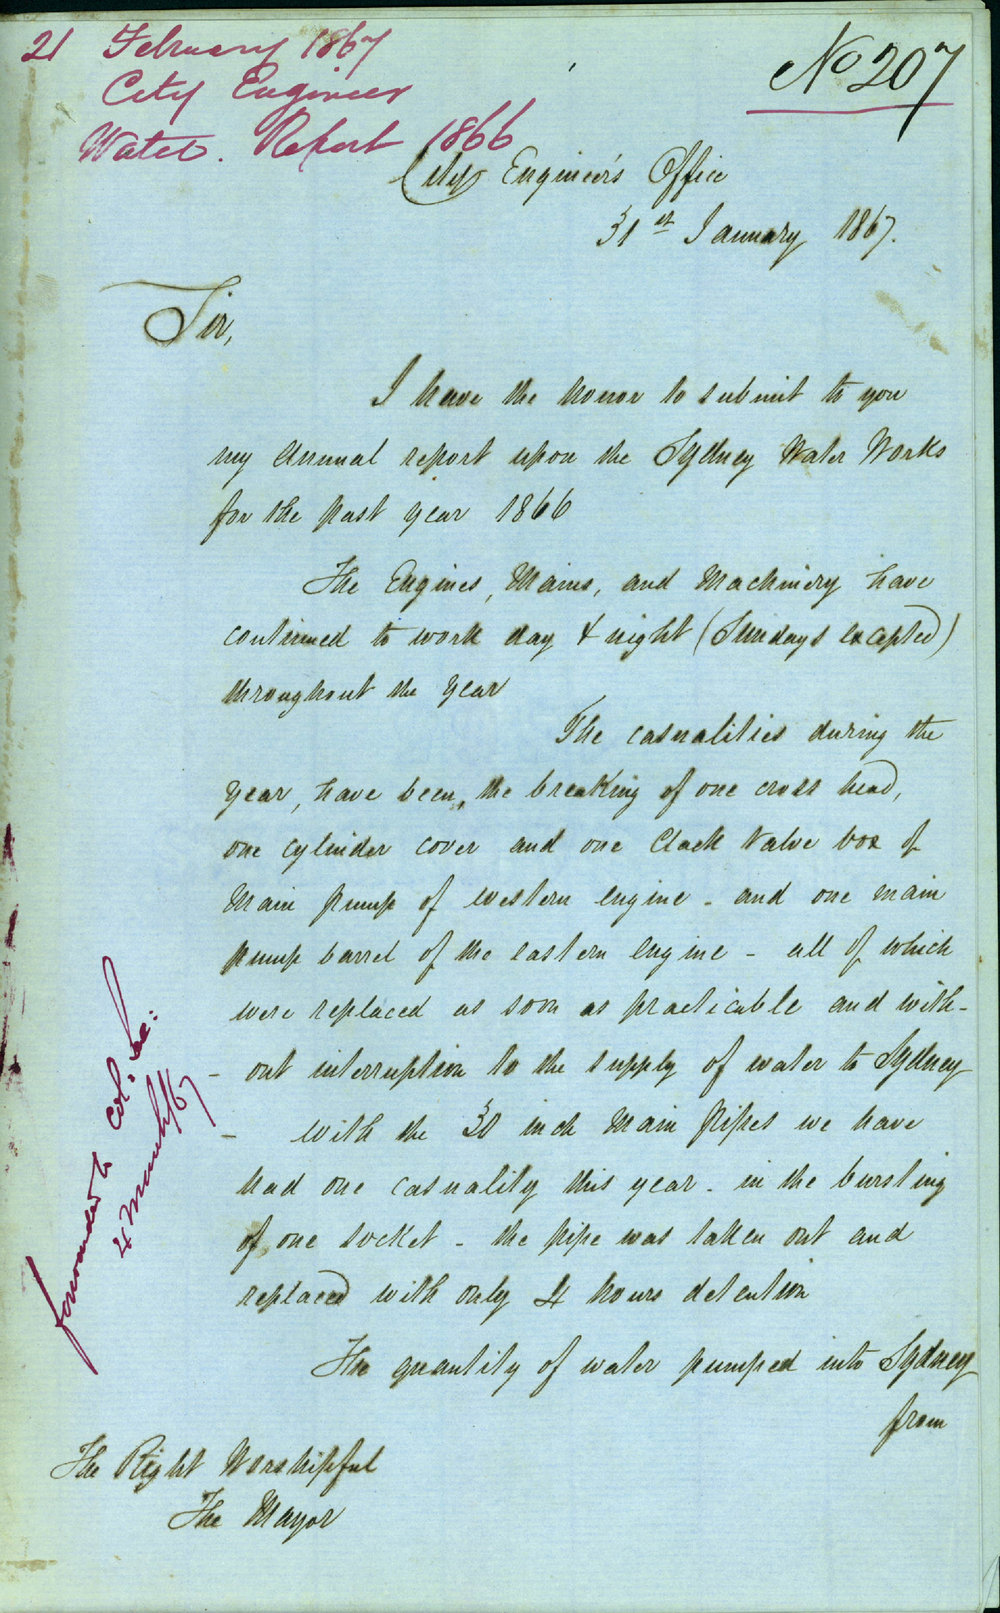 21 February 1867
City Engineer
Water. Report 1866
No 207
City Engineer's Office
31st January 1867.
Sir,
I have the honor to submit to you
my Annual report upon the Sydney Water Works
for the past year 1866
The Engines, Mains, and Machinery have
continued to work day & night (Sundays excepted)
throughout the year
The casualities during the
year, have been, the breaking of one cross head,
one cylinder cover and one Clack Valve box of
Main pump of western engine - and one main
pump barrel of the eastern engine - all of which
were replaced as soon as practicable and with-
- out interruption to the supply of water to Sydney
- With the 30 inch Main Pipes we have
had one casuality this year - in the bursting
of one socket - the pipe was taken out and
replaced with only 4 hours detention
The quantity of water pumped into Sydney
from
The Right Worshipful
The Mayor
forwarded to Col. Sec:
4 March/67